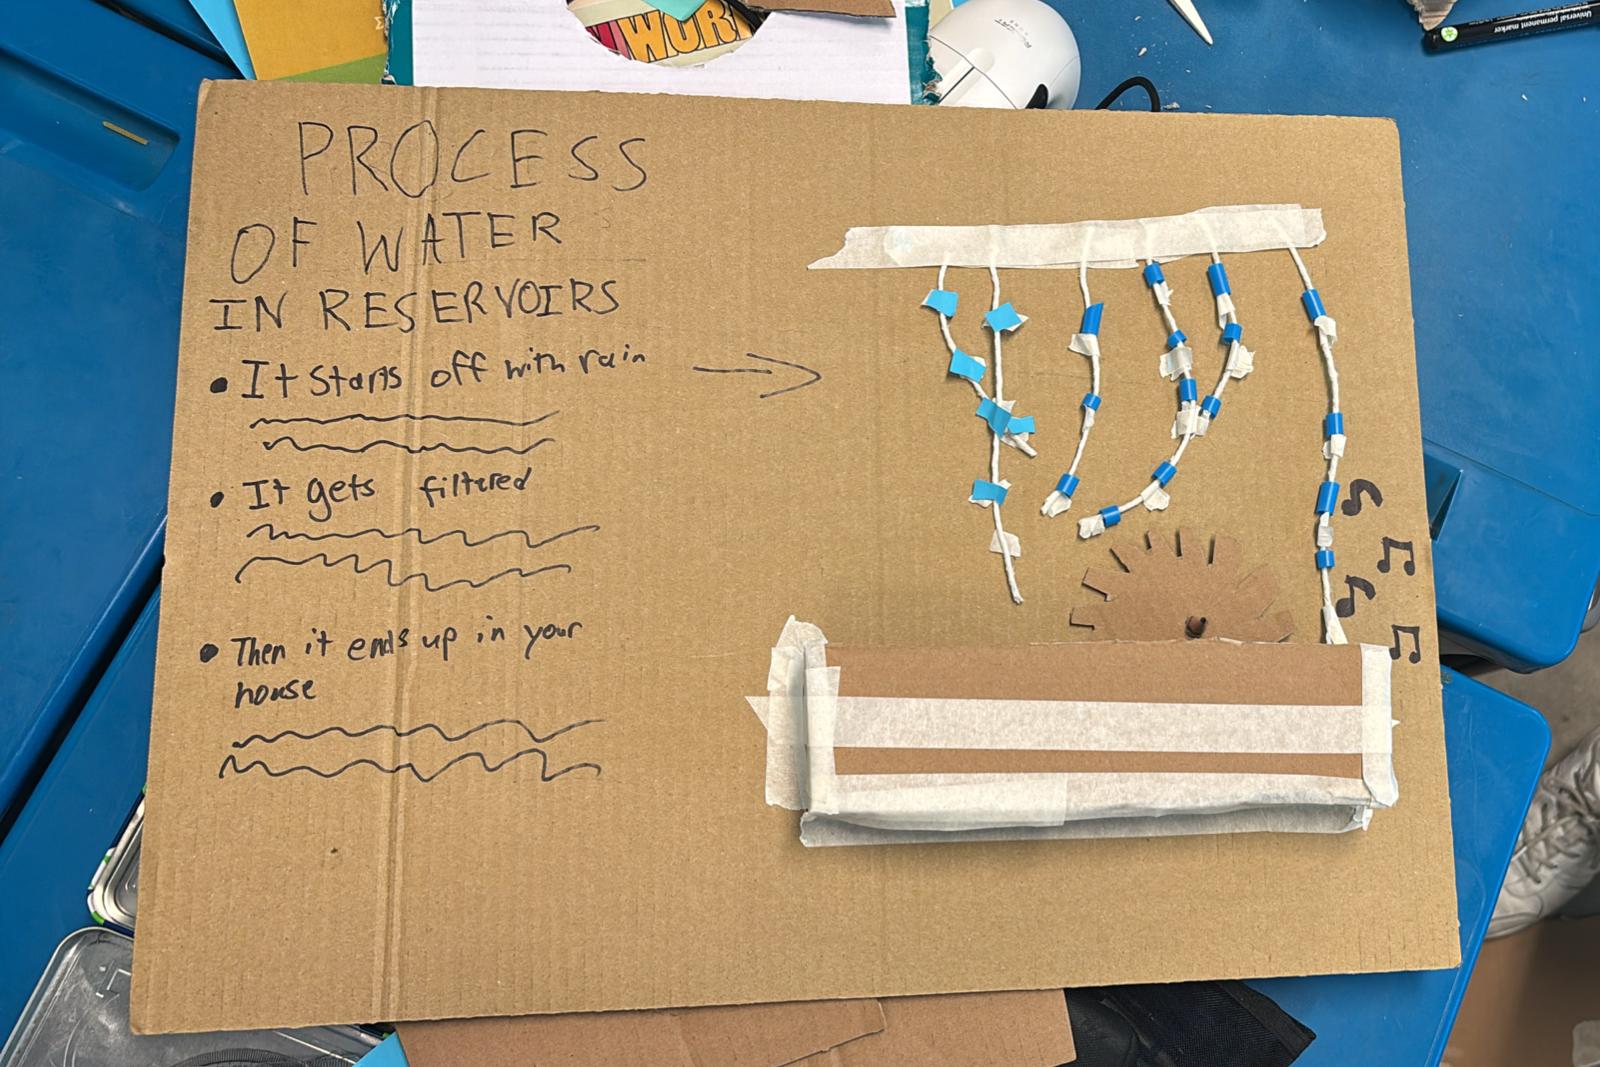 WORK
Universal permanent marker
PROCESS
OF WATER
IN RESERVOIRS
• It starts off with rain
• It gets filtered
• Then it ends up in your
house